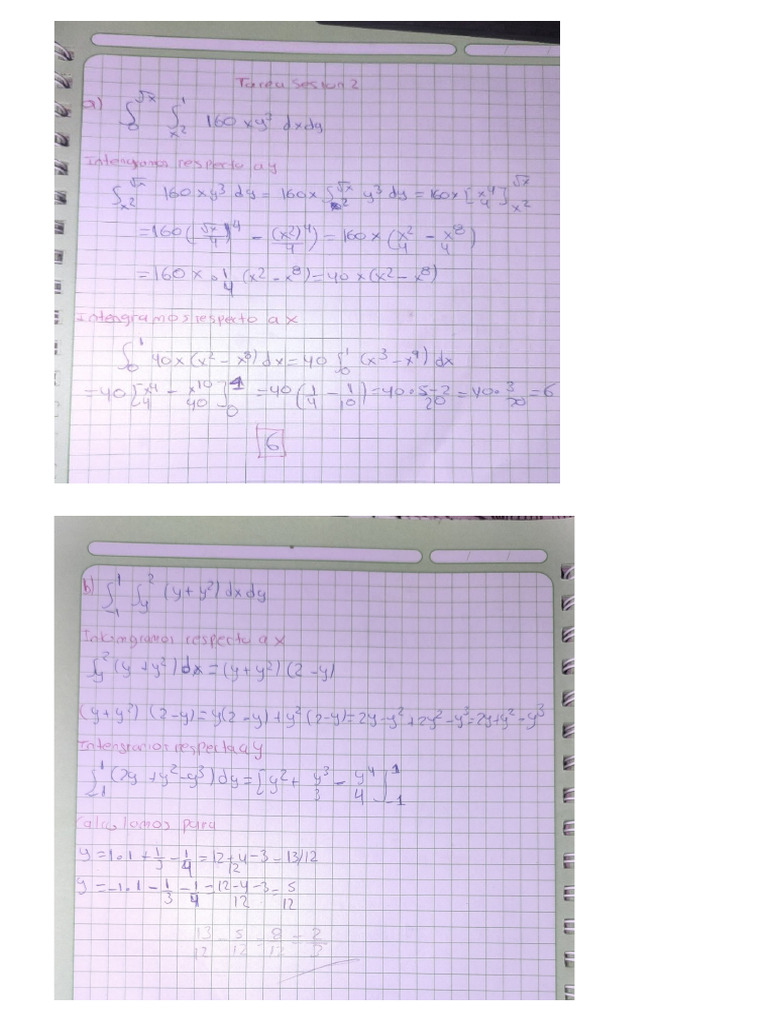 Tarea Sesion 2
a) ∫₀^√x ∫_x²^1 160xy³ dxdy
Intengramos respecto a y
∫_x²^√x 160xy³ dy = 160x ∫_x²^√x y³ dy = 160x [x⁴/4]_x²^√x
= 160(√x/4)⁴ - (x²)⁴/4) = 160x(x²/4 - x⁸/4)
= 160x · 1/4 (x² - x⁸) = 40x(x² - x⁸)
Intengramos respecto a x
∫₀^1 40x(x² - x⁸) dx = 40 ∫₀^1 (x³ - x⁹) dx
= 40[x⁴/4 - x¹⁰/40]₀^1 = 40(1/4 - 1/10) = 40 · 5-2/20 = 40 · 3/20 = 6
6
b) ∫_-1^1 ∫_y^2 (y+y²) dxdy
Intengramos respecto a x
∫_y^2 (y+y²) dx = (y+y²)(2-y)
(y+y²)(2-y) = y(2-y) + y²(2-y) = 2y-y²+2y²-y³ = 2y+y²-y³
Intengramos respecto a y
∫_-1^1 (2y+y²-y³) dy = [y²+ y³/3 - y⁴/4]_-1^1
Calculamos para
y = 1 · 1 + 1/3 - 1/4 = 12+4-3/12 = 13/12
y = -1 · 1 - 1/3 - 1/4 = 12-4-3/12 = 5/12
13/12 - 5/12 = 8/12 = 2/3